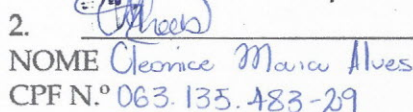 2.
NOME Cleonice Maria Alves
CPF N.º 063.135.483-29